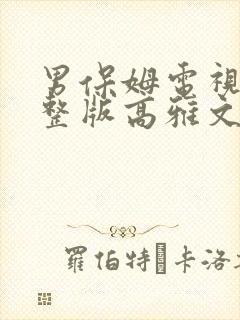 男保姆電視
整版高雅文
羅伯特·卡洛